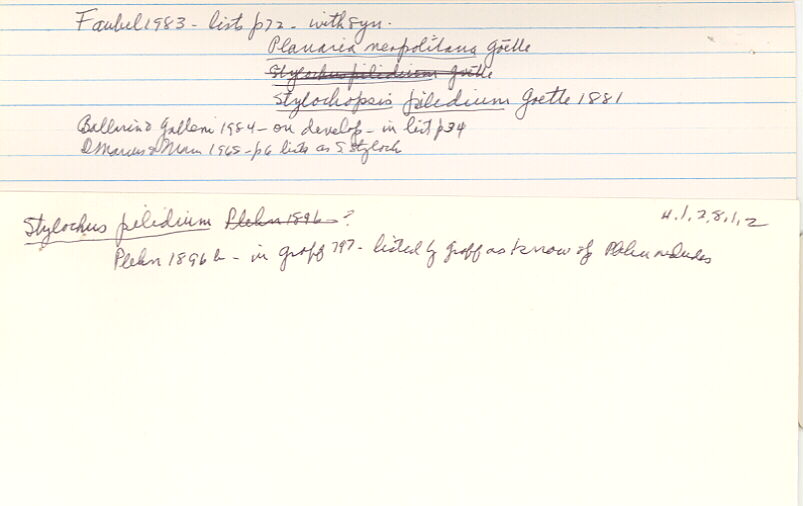 Faubel 1983 - lists p72 - with syn.
Planaria neapolitana Goette
Stylochus pilidium Goette
Stylochopsis pilidium Goette 1881
Ballarin & Galleni 1984 - on develop - in list p34
Marcus & Marcus 1965 - p6 lists as S styloch
Stylochus pilidium Plehn 1896 - ?
4.1.2.8.1.2
Plehn 1896 b - in graff 797 - listed by graff as know of Plehn